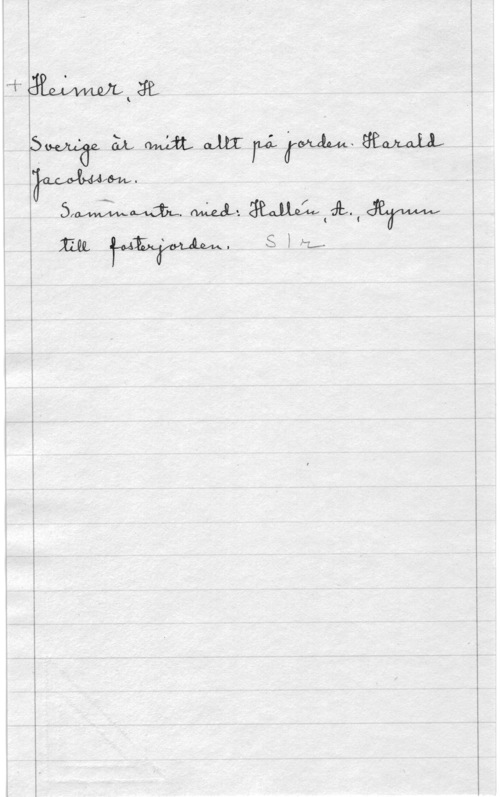 + Heimer, H
Sverige är mitt allt på jorden. Harald
Jacobsson.
Sammantr. med: Hallén, A., Hymn
till fosterjorden. S l r